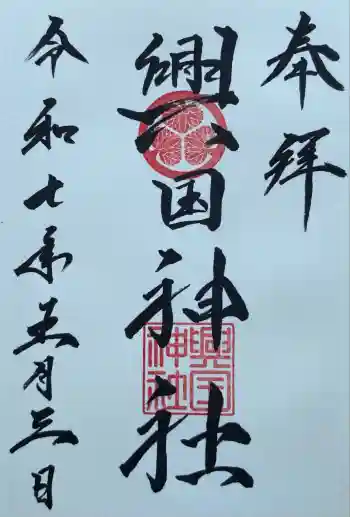 奉拝
興国神社
令和七年五月三日
興国
神社